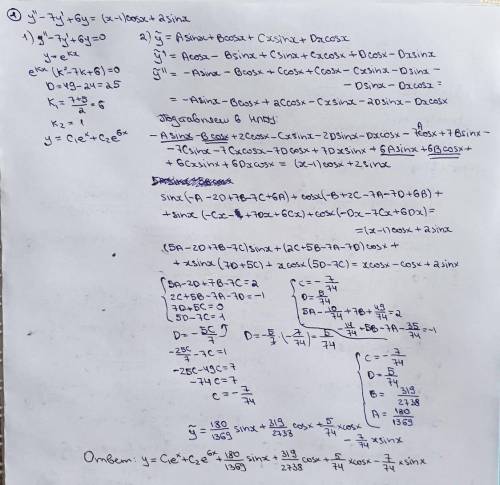 ① y''-7y'+6y=(x-1)cosx+2sinx
1) y''-7y'+6y=0
y=e^{kx}
e^{kx}(k²-7k+6)=0
D=49-24=25
k₁=(7+5)/2=6
k₂=1
y=C₁e^x+C₂e^{6x}
2) ỹ=Asinx+Bcosx+Cxsinx+Dxcosx
ỹ'=Acosx-Bsinx+Csinx+Cxcosx+Dcosx-Dxsinx
ỹ''=-Asinx-Bcosx+Ccosx+Ccosx-Cxsinx-Dsinx-
-Dsinx-Dxcosx=
=-Asinx-Bcosx+2Ccosx-Cxsinx-2Dsinx-Dxcosx
Подставляем в
-Asinx-Bcosx+2Ccosx-Cxsinx-2Dsinx-Dxcosx-7Acosx+7Bsinx-
-7Csinx-7Cxcosx-7Dcosx+7Dxsinx+6Asinx+6Bcosx+
+6Cxsinx+6Dxcosx=(x-1)cosx+2sinx
sinx(-A-2D+7B-7C+6A)+cosx(-B+2C-7A-7D+6B)+
+sinx(-Cx+7Dx+6Cx)+cosx(-Dx-7Cx+6Dx)=
=(x-1)cosx+2sinx
(5A-2D+7B-7C)sinx+(2C+5B-7A-7D)cosx+
+xsinx(7D+5C)+xcosx(5D-7C)=xcosx-cosx+2sinx
5A-2D+7B-7C=2
2C+5B-7A-7D=-1
7D+5C=0
5D-7C=1
D=-5C/7
-25C/7-7C=1
-25C-49C=7
-74C=7
C=-7/74
D=-5/7·(-7/74)=5/74
C=-7/74
D=5/74
5A-10/74+7B+49/74=2
-14/74+5B-7A-35/74=-1
C=-7/74
D=5/74
B=319/2738
A=180/1369
ỹ=180/1369 sinx+319/2738 cosx+5/74 xcosx
-7/74 xsinx
Ответ: y=C₁e^x+C₂e^{6x}+180/1369 sinx+319/2738 cosx+5/74 xcosx-7/74 xsinx